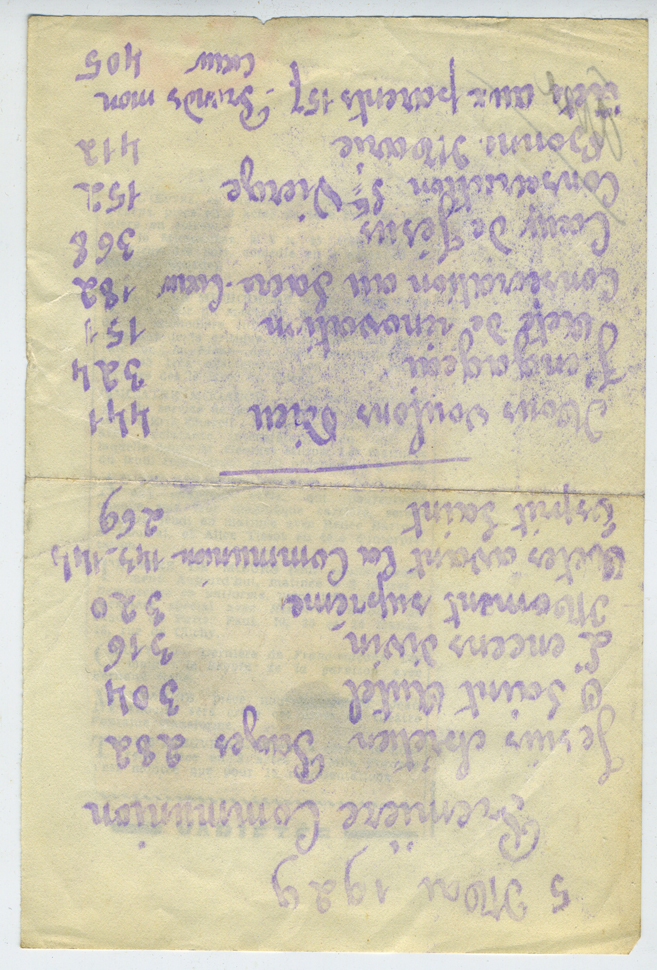 5 Mai 1929
Première Communion
Jesus chrétien Pages 282
O Saint Autel 304
L'encens divin 316
Moment suprême 320
Actes avant la Communion 143-145
Esprit Saint 269
Nous voulons Dieu 441
J'engageai 324
Acte de rénovation 151
Consecration au Sacré-Cœur 182
Cœur de Jésus 368
Consecration Ste Vierge 152
Bonne Marie 412
aux parents 157. Prends mon
cœur 405